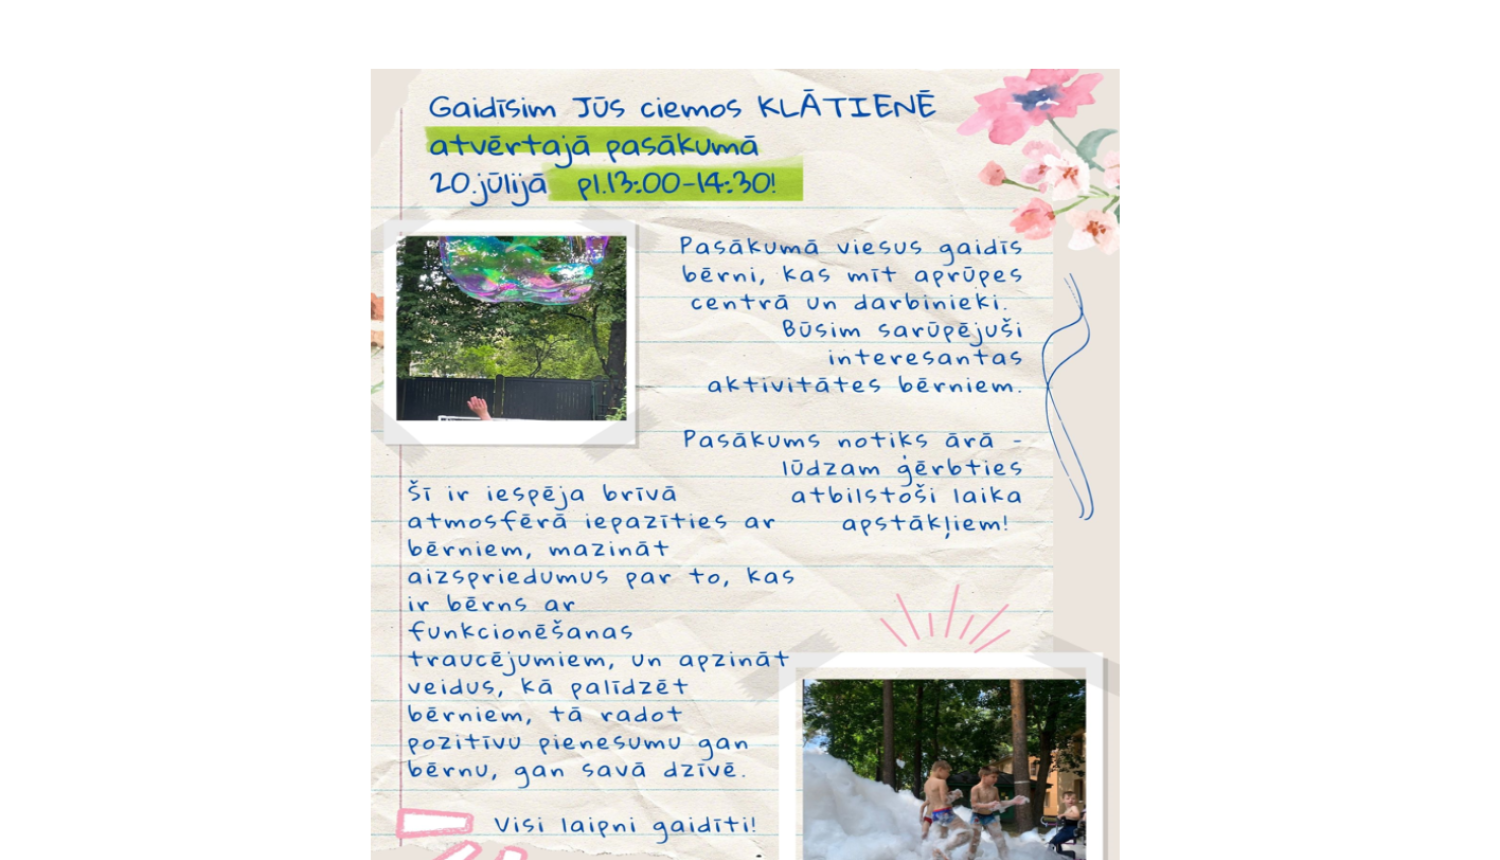 Gaidīsim Jūs ciemos KLĀTIENĒ
atvērtajā pasākumā
20.jūlijā pl.13:00-14:30!
Pasākumā viesus gaidīs
bērni, kas mīt aprūpes
centrā un darbinieki.
Būsim sarūpējuši
interesantas
aktivitātes bērniem.
Pasākums notiks ārā -
lūdzam ģērbties
atbilstoši laika
apstākļiem!
Šī ir iespēja brīvā
atmosfērā iepazīties ar
bērniem, mazināt
aizspriedumus par to, kas
ir bērns ar
funkcionēšanas
traucējumiem, un apzināt
veidus, kā palīdzēt
bērniem, tā radot
pozitīvu pienesumu gan
bērnu, gan savā dzīvē.
Visi laipni gaidīti!